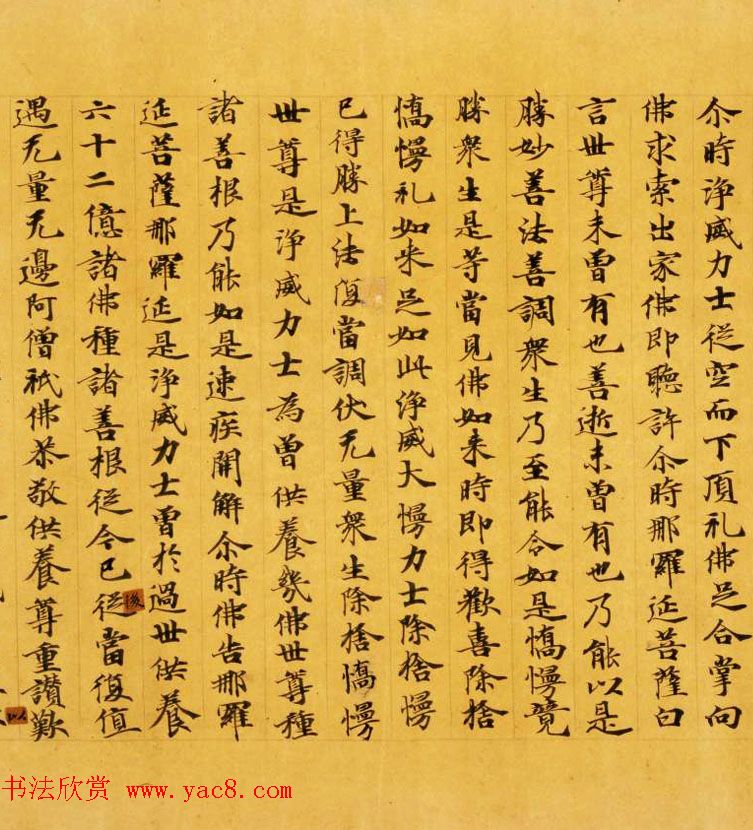 尒時淨威力士從空而下頂礼佛足合掌向
佛求索出家佛即聽許尒時那羅延菩薩白
言世尊未曾有也善逝未曾有也乃能以是
勝妙善法善調衆生乃至能令如是憍慢
勝衆生是等當見佛如来時即得歡喜除捨
憍慢礼如来足如此淨威大慢力士除捨慢
已得勝上法復當調伏无量衆生除捨憍慢
世尊是淨威力士為曾供養幾佛世尊種
諸善根乃能如是速疾開解尒時佛告那羅
延菩薩那羅延是淨威力士曾於過世供養
六十二億諸佛種諸善根從今已從當復值
後
遇无量无邊阿僧祇佛恭敬供養尊重讃歎
以
书法欣赏 www.yac8.com